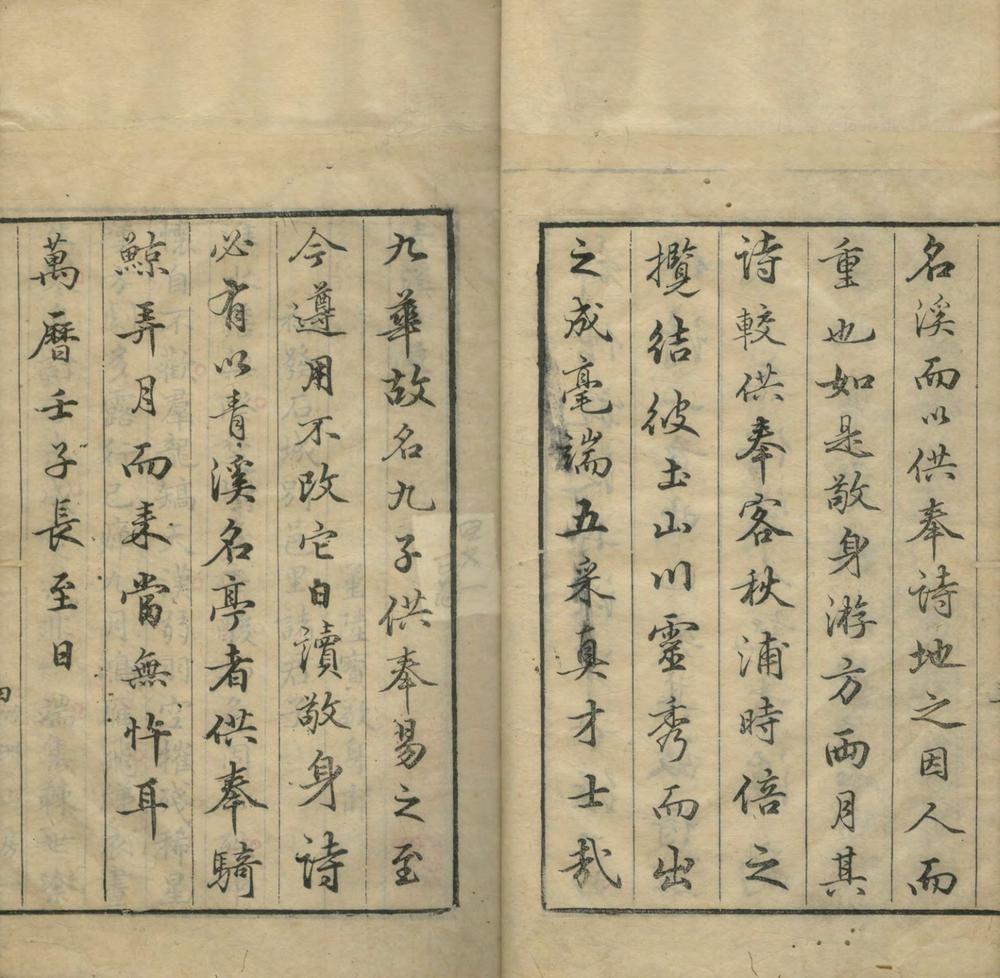 名溪而以供奉詩地之因人而
重也如是敬身游方兩月其
詩較供奉客秋浦時倍之
攬結彼土山川靈秀而出
之成毫端五采真才士哉
九華故名九子供奉易之至
今遵用不改它日讀敬身詩
必有以青溪名亭者供奉騎
鯨弄月而來當無忤耳
萬曆壬子長至日
四